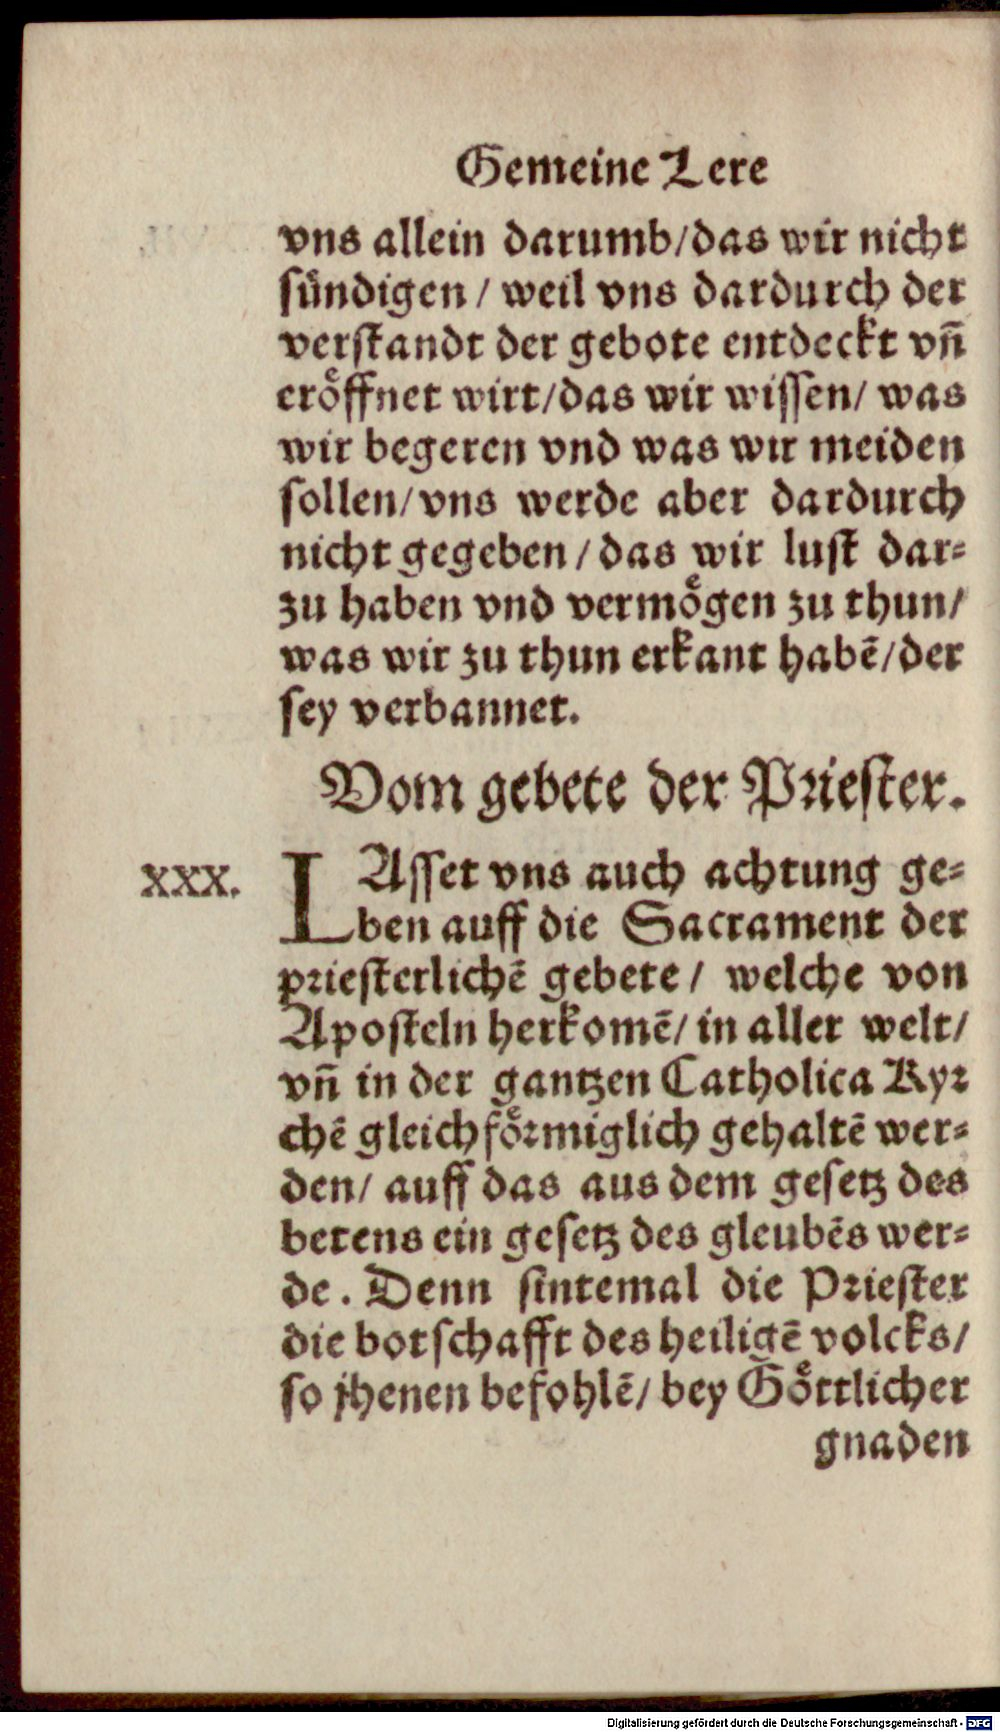 Gemeine Lere
vns allein darumb/das wir nicht
sündigen / weil vns dardurch der
verstandt der gebote entdeckt vn̄
eröffnet wirt/das wir wissen/ was
wir begeren vnd was wir meiden
sollen/vns werde aber dardurch
nicht gegeben / das wir lust dar⸗
zu haben vnd vermögen zu thun/
was wir zu thun erkant habē/der
sey verbannet.
Vom gebete der Priester.
XXX. LAsset vns auch achtung ge⸗
ben auff die Sacrament der
priesterlichē gebete / welche von
Aposteln herkomē/ in aller welt/
vn̄ in der gantzen Catholica Kyr
chē gleichförmiglich gehaltē wer⸗
den/ auff das aus dem gesetz des
betens ein gesetz des gleubēs wer⸗
de. Denn sintemal die Priester
die botschafft des heiligē volcks/
so jhenen befohlē/ bey Göttlicher
gnaden
Digitalisierung gefördert durch die Deutsche Forschungsgemeinschaft - DFG